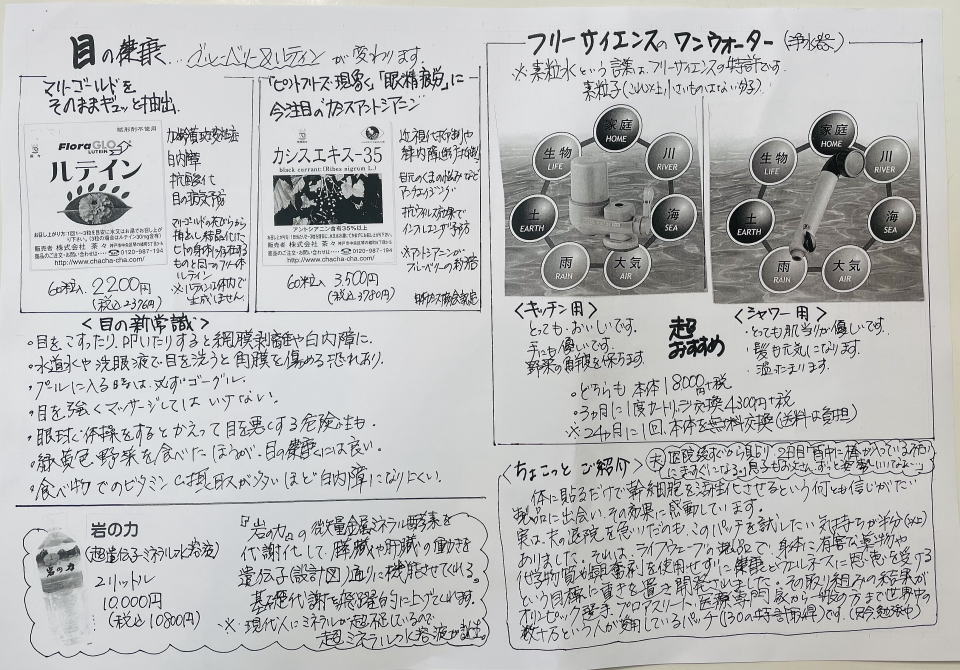 目の健康…ブルーベリー&ルテインが変わります。
マリーゴールドを
そのままギュッと抽出.
賦形剤不使用
FloraGLO
LUTEIN
ルテイン
販売者 株式会社 茶々
0120-987-194
http://www.chacha-cha.com/
加齢黄斑変性症
白内障
抗酸化
目の病気予防
マリーゴールドの花びらから
抽出し結晶化した
ヒトの身体に存在する
ものと同じフリー体
ルテイン
※ルテインは体内で
生成しません.
60粒入 2200円
(税込2376円)
「ピットフォールズ・現象」「眼精疲労」に
今注目のカシスアントシアニン
カシスエキス-35
black currant:(Ribes nigrum L.)
アントシアニン含有35%以上
販売者 株式会社 茶々
0120-987-194
http://www.chacha-cha.com/
近視化抑制や
目元のくまの悩みなど
アンチエイジング
抗ウイルス効果で
インフルエンザ予防
※アントシアニンが
ブルーベリーの
60粒入 3,500円
(税込3780円)
<目の新常識>
・目をこすったり、叩いたりすると網膜剥離や白内障に.
・水道水や洗眼液で目を洗うと角膜を傷める恐れあり.
・プールに入る時は、必ずゴーグル.
・目を強くマッサージしてはいけない.
・眼球の体操をするとかえって目を悪くする危険性も.
・緑黄色野菜を食べたほうが、目の健康には良い.
・食べ物でのビタミンC摂取量が多いほど白内障になりにくい.
岩の力
(超遺伝子ミネラルの水溶液)
2リットル
10,000円
(税込10800円)
岩の力
『岩の力』の微量金属ミネラル酵素を
代謝化して、膵臓や肝臓の働きを
遺伝子(設計図)通りに機能させてくれる.
基礎代謝を飛躍的に上げてくれます.
※現代人にミネラルが超不足しているので
超ミネラルの水溶液が誕生.
フリーサイエンスのワンウォーター(浄水器)
※素粒水という言葉はフリーサイエンスの特許です.
素粒子(これ以上小さいものはない分子).
家庭
HOME
生物
LIFE
川
RIVER
土
EARTH
海
SEA
雨
RAIN
大気
AIR
家庭
HOME
生物
LIFE
川
RIVER
土
EARTH
海
SEA
雨
RAIN
大気
AIR
<キッチン用>
とっても・おいしいです.
手にも優しいです.
野菜の鮮度を保ちます
超
おすすめ
<シャワー用>
・とっても肌当りが優しいです.
・髪も元気になります.
・温たまります.
・どちらも 本体18000円+税
・3ヵ月に1度カートリッジ交換4300円+税
※24ヵ月に1回、本体を無料交換(送料は負担)
<ちょこっとご紹介>
体に貼るだけで幹細胞を活性化させるという何とも信じがたい
製品に出会い、その効果に感動しています.
実は、夫の退院を急いだのも、このパッチを試したい気持ちが半分(以上)
ありました。それは、ライフウェーブの製品で、身体に有害な薬物や
化学物質や興奮剤を使用せずに健康とウェルネスに恩恵を受ける
という目標に重きを置き開発されました。その取り組みの結果が
オリンピック選手、プロアスリート、医療専門家から一般の方まで世界中の
数十万という人が愛用しているパッチ(130の特許取得)です.(只今勉強中)